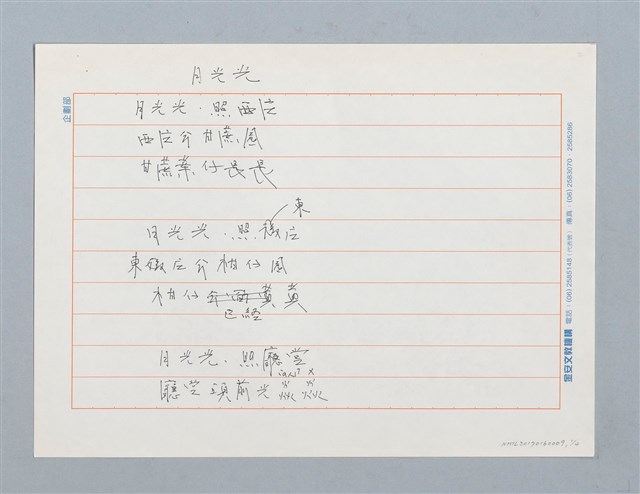 月光光
月光光．照西庄
西庄有甘蔗園
甘蔗葉仔長長
東
月光光．照庄
東庄有柑仔園
柑仔黃黃
已經
月光光．照廳堂
廳堂頭前光焱焱
企劃部
金安文教機構 電話：(06) 2585148（代表號） 傳真：(06) 2583070．2585288
NMTL20190160009, 1/4